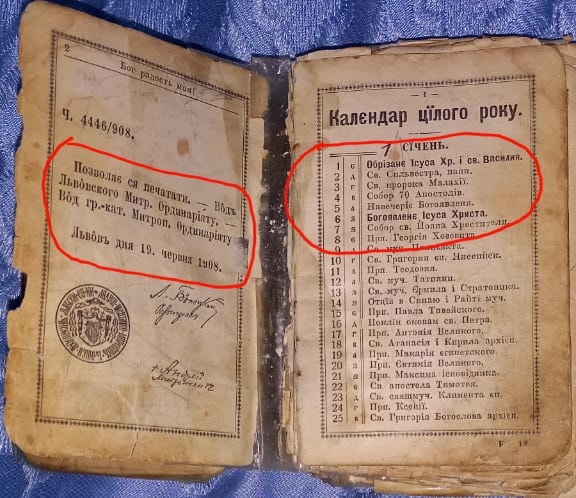 2
Бог радость моя!
Ч. 4446/908.
Позволяє ся печатати. — Вôдъ
Львôвского Митр. Ординаріяту. —
Вôд гр.-кат. Митроп. Ординаріяту
Львôвъ дня 19. червня 1908.
+ Андрей
— 1 —
Калєндар цїлого року.
1
СІЧЕНЬ.
1 Обрізанє Ісуса Хр. і св. Василия.
2 Св. Сильвестра, папи.
3 Св. пророка Малахії.
4 Собор 70 Апостолів.
5 Навечеріє Богоявленя.
6 Богоявленє Ісуса Христа.
7 Собор св. Йоана Хрестителя.
8 Прп. Георгія Ховевита.
Св. муч.
10 Св. Григория єп.
11 Прп. Теодозия.
12 Св. муч. Татияни.
13 Св. муч. Єрмила і Стратоника.
14 Отцїв в Синаю і Райті муч.
15 Прп. Павла Тивейского.
16 Поклін оковам св. Петра.
17 Прп. Антонія Великого.
18 Св. Атанасія і Кирила архієп.
19 Прп. Макарія єгипетского.
20 Прп. Евтимія Великого.
21 Прп. Максима ісповідника.
22 Св. апостола Тимотея.
23 Св. свящмуч. Климента єп.
24 Прп. Ксенїї.
25 Св. Григорія Богослова архієп.